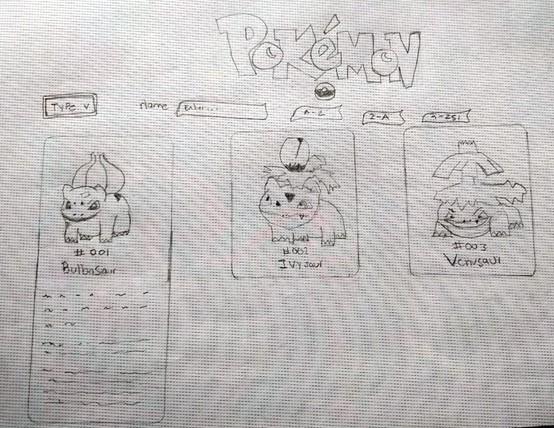 POKéMON
TYPE v
Name Enter...
A-Z
Z-A
#001
Bulbasaur
#002
IVysaur
#003
Venusaur